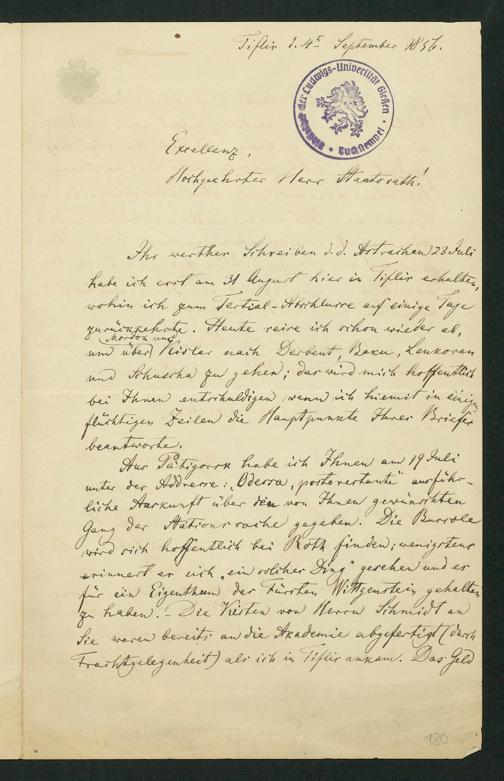 Tiflis d. 4t September 1856.
der Ludwigs-Universität Gießen
Buchstempel
Excellenz,
Hochgeehrter Herr Staatsrath!
Ihr werthes Schreiben d. d. Astrachan 23 Juli
habe ich erst am 31 August hier in Tiflis erhalten,
wohin ich zum Tertial-Abschlusse auf einige Tage
zurückkehrte. Heute reise ich schon wieder ab,
(Mosdok und)
um über Kislar nach Derbent, Baku, Lenkoran
und Schuscha zu gehen; das wird mich hoffentlich
bei Ihnen entschuldigen wenn ich hiemit in einigen
flüchtigen Zeilen die Hauptpunkte Ihres Briefes
beantworte.
Aus Pätigorsk habe ich Ihnen am 19 Juli
unter der Addresse: „Odessa, poste restante" ausführ-
liche Auskunft über den von Ihnen gewünschten
Gang der Stationssache gegeben. Die Bussole
wird sich hoffentlich bei Roth finden; wenigstens
erinnert er sich „ein solches Ding" gesehen und es
für ein Eigenthum des Fürsten Wittgenstein gehalten
zu haben. Die Kisten von Herrn Schmidt an
Sie waren bereits an die Akademie abgefertigt (durch
Frachtgelegenheit) als ich in Tiflis ankam. Das Geld
180